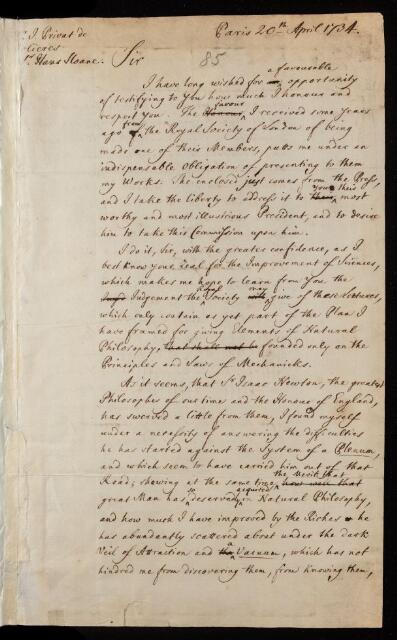 J. Privat de
lieres
Hans Sloane.
Paris 20.th April 1734.
Sir
85
a favourable
I have long wished for an opportunity
of testifying to You how much I honour and
favour
respect You. The Honour I received some Years
from
ago of the Royal Society of London of being
made one of their Members, puts me under an
indispensable Obligation of presenting to them
my Works. The enclosed just comes from the Press,
You their
and I take the liberty to address it to most
worthy and most illustrious President, and to desire
him to take this Commission upon him.
I do it, Sir, with the greater confidence, as I
best know your Zeal for the Improvement of Sciences,
which makes me hope to learn from You the
Royal may
Judgement the Society give of these Lectures,
which only contain as yet part of the Plan I
have framed for giving Elements of Natural
Philosophy, that shall not be founded only on the
Principles and Laws of Mechanicks.
As it seems, that Sr. Isaac Newton, the greatest
Philosopher of our times and the Honour of England,
has swerved a little from them, I found myself
under a necessity of answering the difficulties
he has started against the System of a Plenum,
and which seem to have carried him out of that
the Merit that
Road; shewing at the same time how well that
acquired
great Man has deserved in Natural Philosophy,
and how much I have improved by the Riches he
has abundantly scattered about under the dark
a
Veil of Attraction and the Vacuum, which has not
hindred me from discovering them, from knowing them,